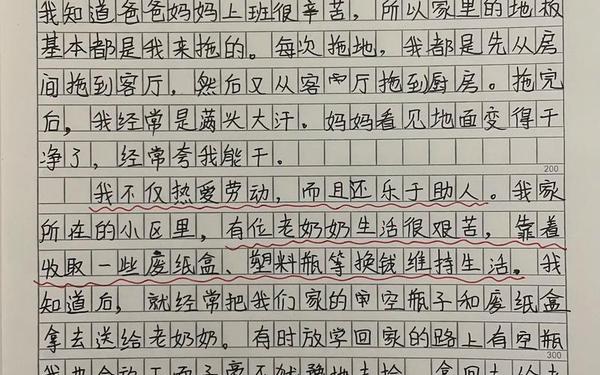 我知道爸爸妈妈上班很辛苦，所以家里的地板
基本都是我来拖的。每次拖地，我都是先从房
间拖到客厅，然后又从客厅拖到厨房。拖完
后，我经常是满头大汗。妈妈看见地面变得干
净了，经常夸我能干。
200
我不仅热爱劳动，而且还乐于助人。我家
所在的小区里，有位老奶奶生活很艰苦，靠着
收取一些废纸盒、塑料瓶等换钱维持生活。我
知道后，就经常把我们家的空瓶子和废纸盒
拿去送给老奶奶。有时放学回家的路上有空瓶
300